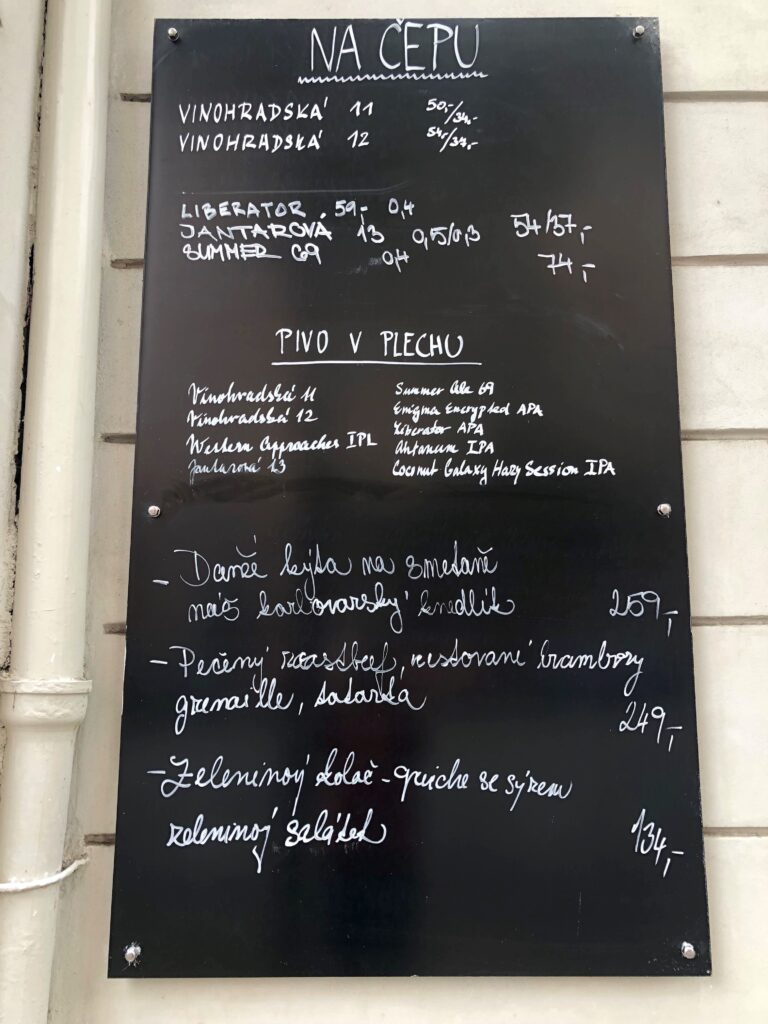 NA ČEPU
VINOHRADSKÁ 11 50,-/34,-
VINOHRADSKÁ 12 54,-/37,-
LIBERATOR 59,- 0,4
JANTAROVÁ 13 0,5/0,3 54/37,-
SUMMER 69 0,4 74,-
PIVO V PLECHU
Vinohradská 11
Vinohradská 12
Western Approaches IPL
Jantarová 13
Summer Ale 69
Enigma Encrypted APA
Liberator APA
Ahtanum IPA
Coconut Galaxy Hazy Session IPA
- Dančí kýta na smetaně
náš karlovarský knedlík 259,-
- Pečený roastbeef, restované brambory
grenaille, tatarka 249,-
- Zeleninový koláč - quiche se sýrem
zeleninový salátek 134,-